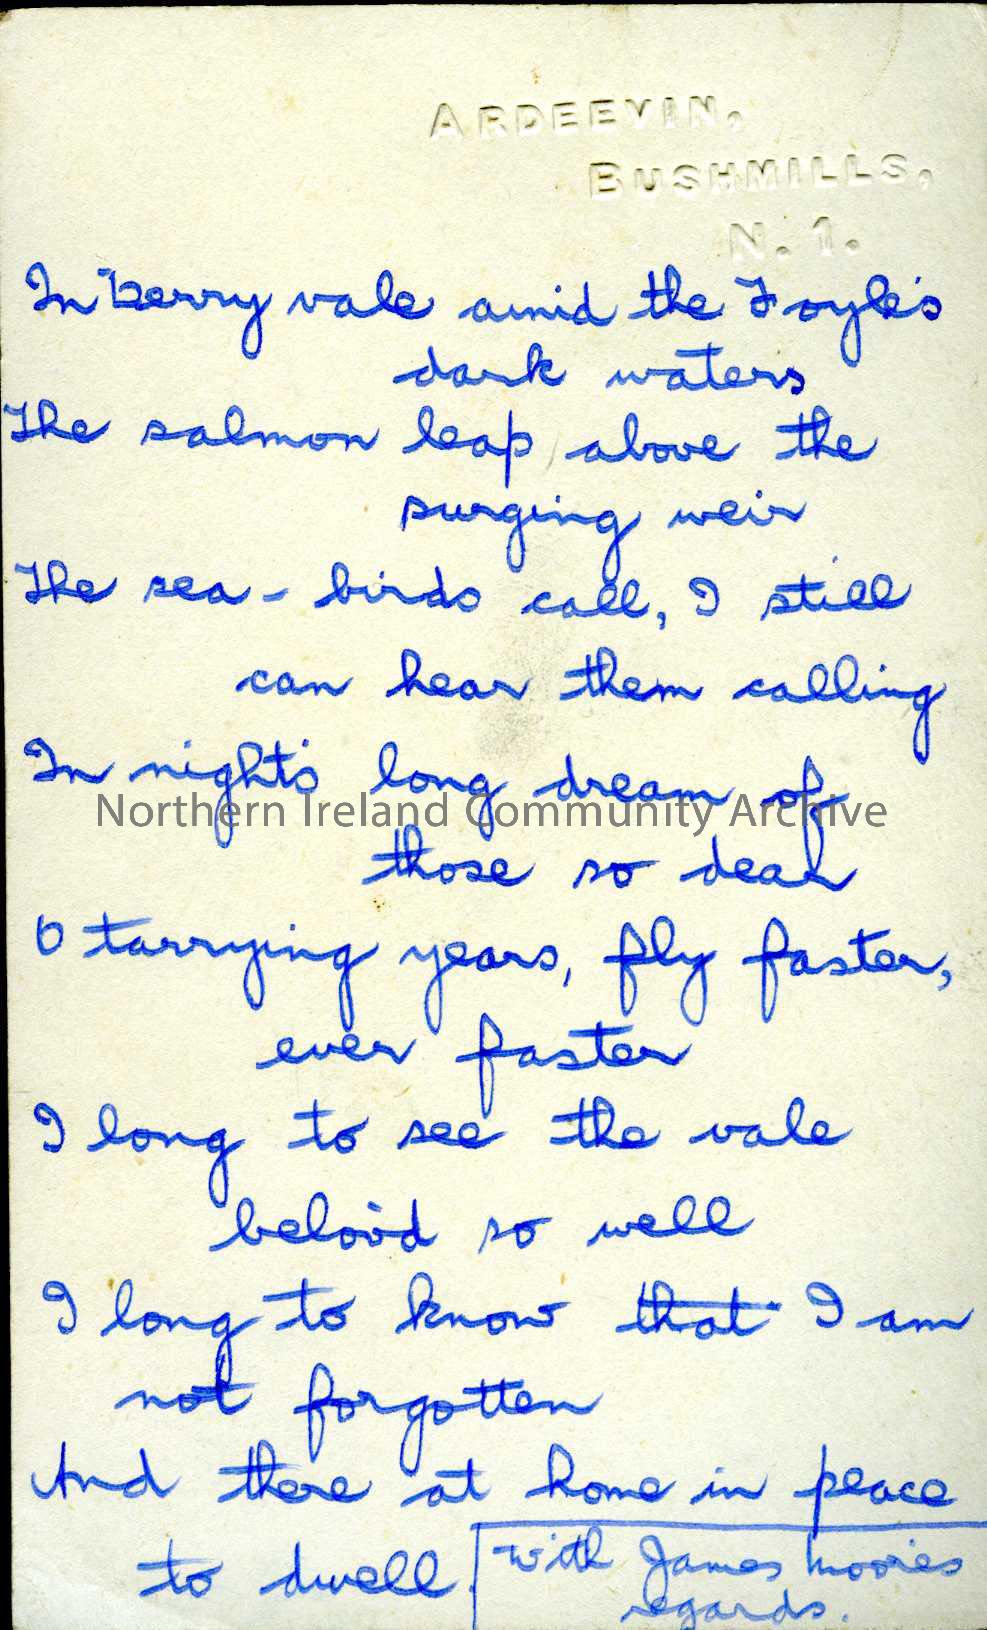 ARDEEVIN,
BUSHMILLS,
N. 1.
In Derry vale amid the Foyle's
dark waters
The salmon leap above the
surging weir
The sea-birds call, I still
can hear them calling
In night's long dream of
Northern Ireland Community Archive
those so dear
O tarrying years, fly faster,
ever faster
I long to see the vale
belov'd so well
I long to know that I am
not forgotten
And there at home in peace
to dwell.
with James Moore's
regards.